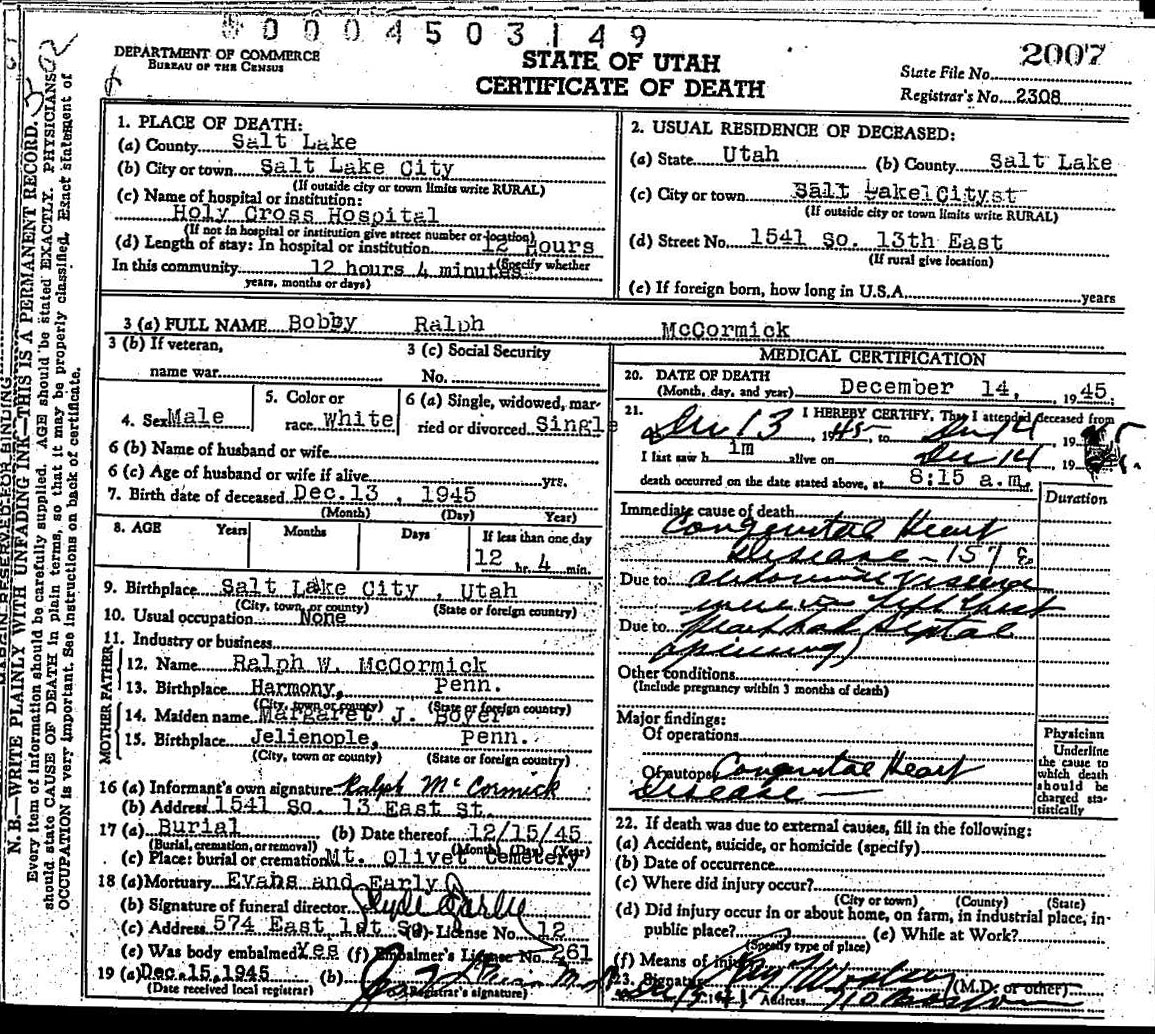 0 0 0 4 5 0 3 1 4 9
2007
DEPARTMENT OF COMMERCE
BUREAU OF THE CENSUS
STATE OF UTAH
CERTIFICATE OF DEATH
State File No.
Registrar's No. 2308
N. B.—WRITE PLAINLY WTH UNFADING INK—THIS IS A PERMANENT RECORD.
Every item of information should be carefully supplied. AGE should be stated EXACTLY. PHYSICIANS
should state CAUSE OF DEATH in plain terms, so that it may be properly classified. Exact statement of
OCCUPATION is very important. See instructions on back of certificate.
1. PLACE OF DEATH:
(a) County Salt Lake
(b) City or town Salt Lake City
(If outside city or town limits write RURAL)
(c) Name of hospital or institution:
Holy Cross Hospital
(If not in hospital or institution give street number or location)
(d) Length of stay: In hospital or institution 12 Hours
(Specify whether
In this community 12 hours 4 minutes
years, months or days)
2. USUAL RESIDENCE OF DECEASED:
(a) State Utah (b) County Salt Lake
(c) City or town Salt Lake City
(If outside city or town limits write RURAL)
(d) Street No. 1541 So. 13th East
(If rural give location)
(e) If foreign born, how long in U.S.A. years
3 (a) FULL NAME Bobby Ralph McCormick
3 (b) If veteran,
name war
3 (c) Social Security
No.
4. Sex Male
5. Color or
race White
6 (a) Single, widowed, mar-
ried or divorced Single
6 (b) Name of husband or wife
6 (c) Age of husband or wife if alive yrs.
7. Birth date of deceased Dec. 13, 1945
(Month) (Day) Year)
8. AGE Years Months Days If less than one day
12 hr. 4 min.
9. Birthplace Salt Lake City, Utah
(City, town, or county) (State or foreign country)
10. Usual occupation None
11. Industry or business
FATHER
12. Name Ralph W. McCormick
13. Birthplace Harmony, Penn.
(City, town or county) (State or foreign country)
MOTHER
14. Maiden name Margaret J. Boyer
15. Birthplace Jelienople, Penn.
(City, town or county) (State or foreign country)
16 (a) Informant's own signature Ralph McCormick
(b) Address 1541 So. 13 East St.
17 (a) Burial (b) Date thereof 12/15/45
(Burial, cremation, or removal) (Month) (Day) (Year)
(c) Place: burial or cremation Mt. Olivet Cemetery
18 (a) Mortuary Evans and Early
(b) Signature of funeral director Early
(c) Address 574 East 1st So. (d) License No. 12
(e) Was body embalmed Yes (f) Embalmer's License No. 261
19 (a) Dec. 15, 1945 (b)
(Date received local registrar) Registrar's signature)
MEDICAL CERTIFICATION
20. DATE OF DEATH
(Month, day, and year) December 14, 1945;
21. I HEREBY CERTIFY, That I attended deceased from
Dec 13, 1945, to Dec 14, 19
I last saw h im alive on Dec 14, 19
death occurred on the date stated above, at 8:15 a.m.
Duration
Immediate cause of death
Congenital Heart
Disease - 157
Due to abdominal viscera
were in left chest
Due to
septal
opening)
Other conditions
(Include pregnancy within 3 months of death)
Major findings:
Of operations
Of autopsy Congenital Heart
Disease
Physician
Underline
the cause to
which death
should be
charged sta-
tistically
22. If death was due to external causes, fill in the following:
(a) Accident, suicide, or homicide (specify)
(b) Date of occurrence
(c) Where did injury occur?
(City or town) (County) (State)
(d) Did injury occur in or about home, on farm, in industrial place, in-
public place? (e) While at Work?
(Specify type of place)
(f) Means of injury
23. Signature (M.D. or other)
Address